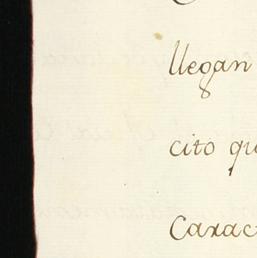 llegan
cito qu
Carac